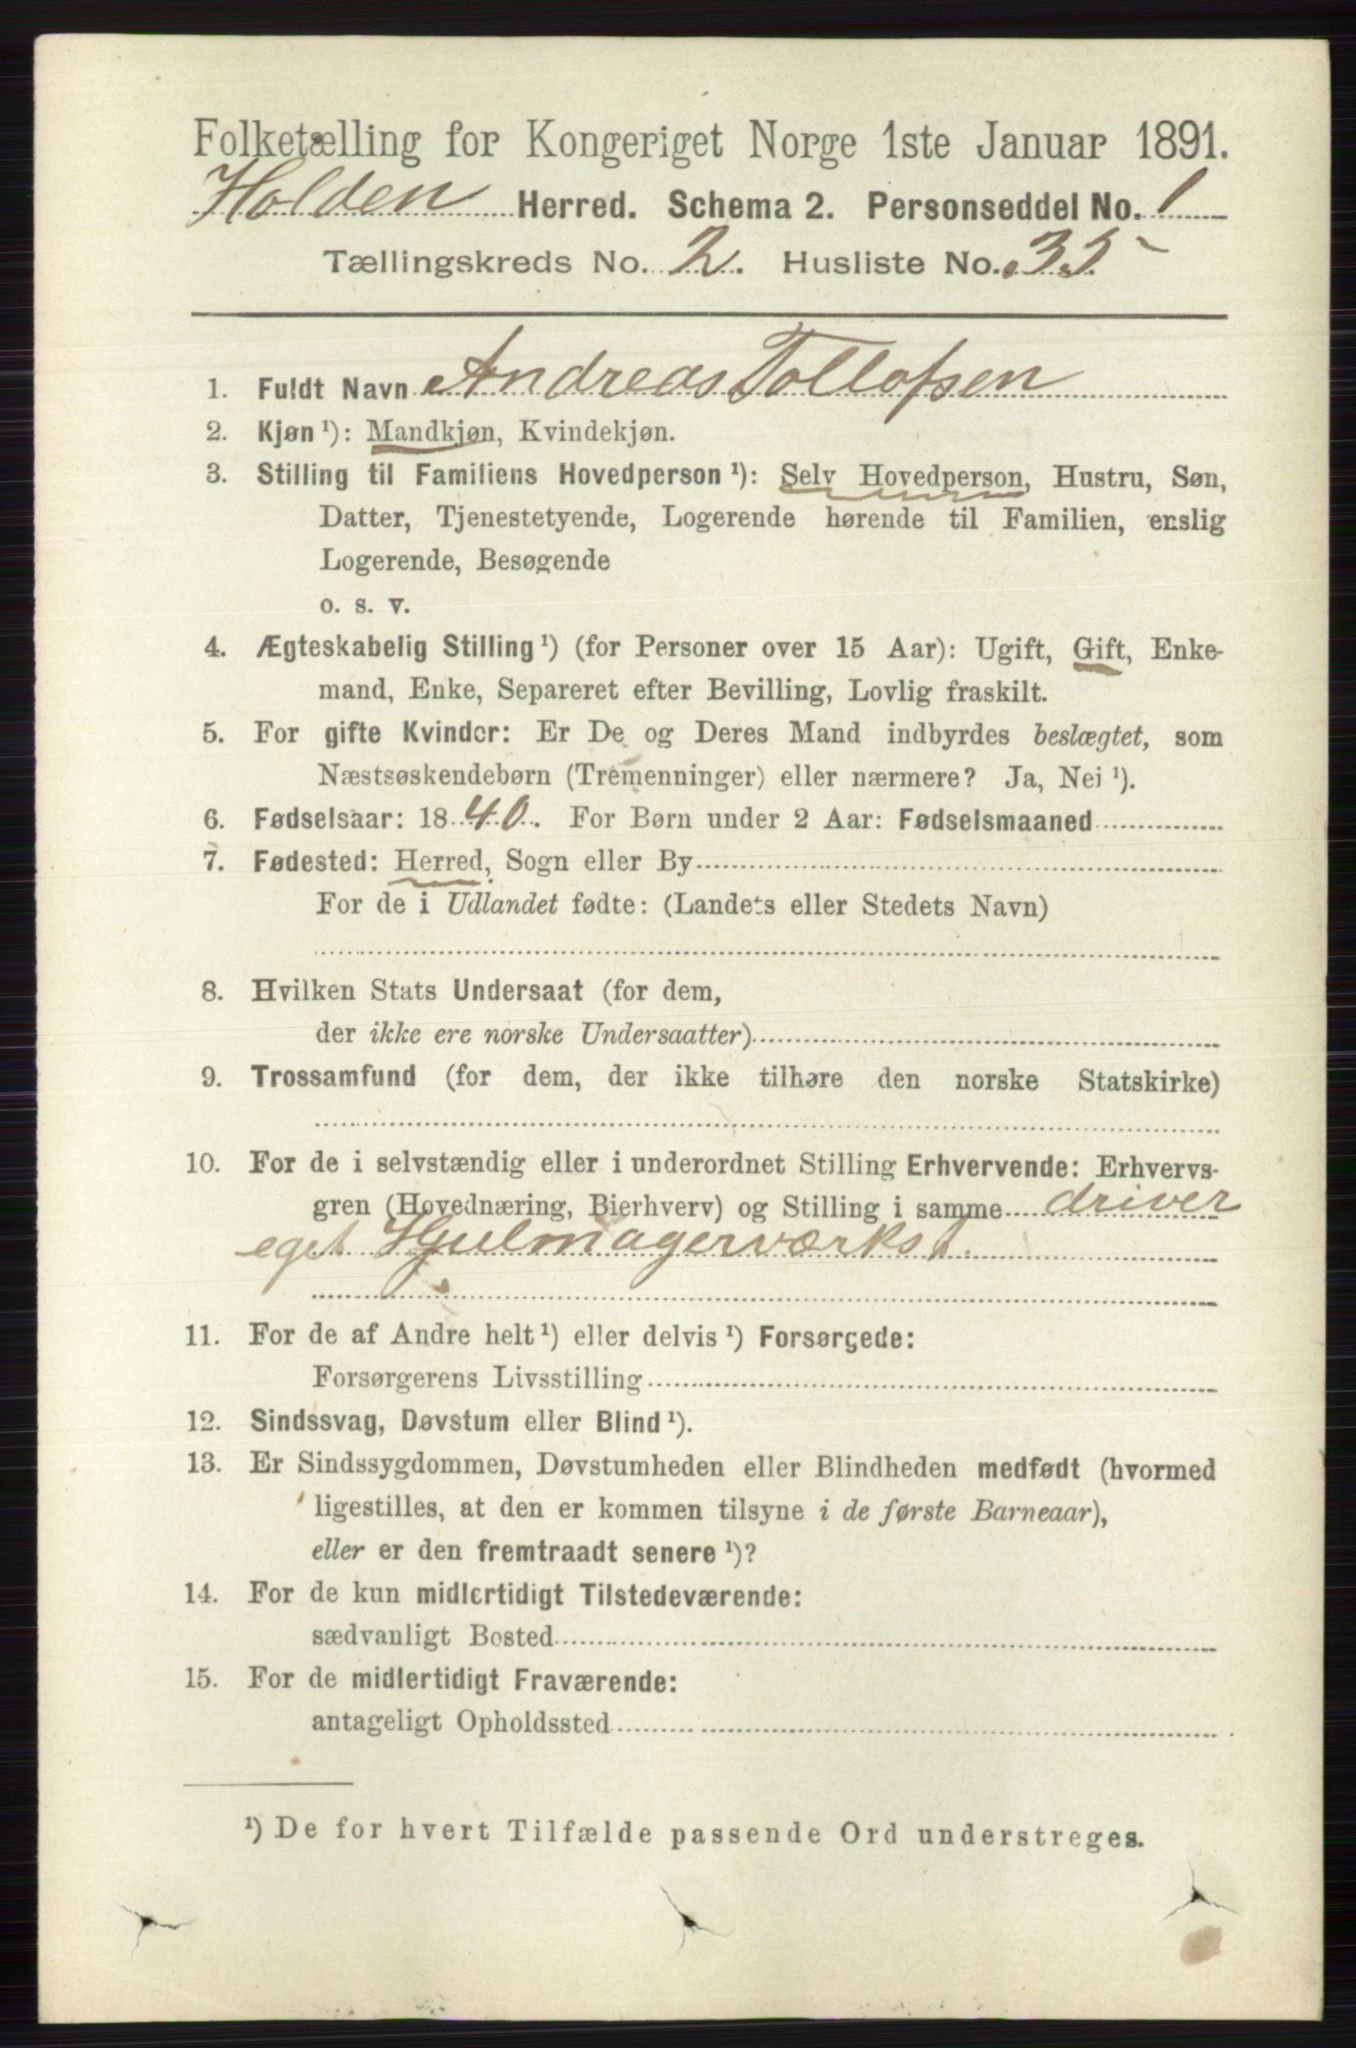 Folketælling for Kongeriget Norge 1ste Januar 1891.
Holden Herred. Schema 2. Personseddel No. 1
Tællingskreds No. 2. Husliste No. 35
1. Fuldt Navn Andreas Tollofsen
2. Kjøn ¹): Mandkjøn, Kvindekjøn.
3. Stilling til Familiens Hovedperson ¹): Selv Hovedperson, Hustru, Søn,
Datter, Tjenestetyende, Logerende hørende til Familien, enslig
Logerende, Besøgende
o. s. v.
4. Ægteskabelig Stilling ¹) (for Personer over 15 Aar): Ugift, Gift, Enke-
mand, Enke, Separeret efter Bevilling, Lovlig fraskilt.
5. For gifte Kvinder: Er De og Deres Mand indbyrdes beslægtet, som
Næstsøskendebørn (Tremenninger) eller nærmere? Ja, Nei ¹).
6. Fødselsaar: 1840. For Børn under 2 Aar: Fødselsmaaned
7. Fødested: Herred, Sogn eller By
For de i Udlandet fødte: (Landets eller Stedets Navn)
8. Hvilken Stats Undersaat (for dem,
der ikke ere norske Undersaatter)
9. Trossamfund (for dem, der ikke tilhøre den norske Statskirke)
10. For de i selvstændig eller i underordnet Stilling Erhvervende: Erhvervs-
gren (Hovednæring, Bierhverv) og Stilling i samme driver
eget Hjulmagerværkst.
11. For de af Andre helt ¹) eller delvis ¹) Forsørgede:
Forsørgerens Livsstilling
12. Sindssvag, Døvstum eller Blind ¹).
13. Er Sindssygdommen, Døvstumheden eller Blindheden medfødt (hvormed
ligestilles, at den er kommen tilsyne i de første Barneaar),
eller er den fremtraadt senere ¹)?
14. For de kun midlertidigt Tilstedeværende:
sædvanligt Bosted
15. For de midlertidigt Fraværende:
antageligt Opholdssted
¹) De for hvert Tilfælde passende Ord understreges.